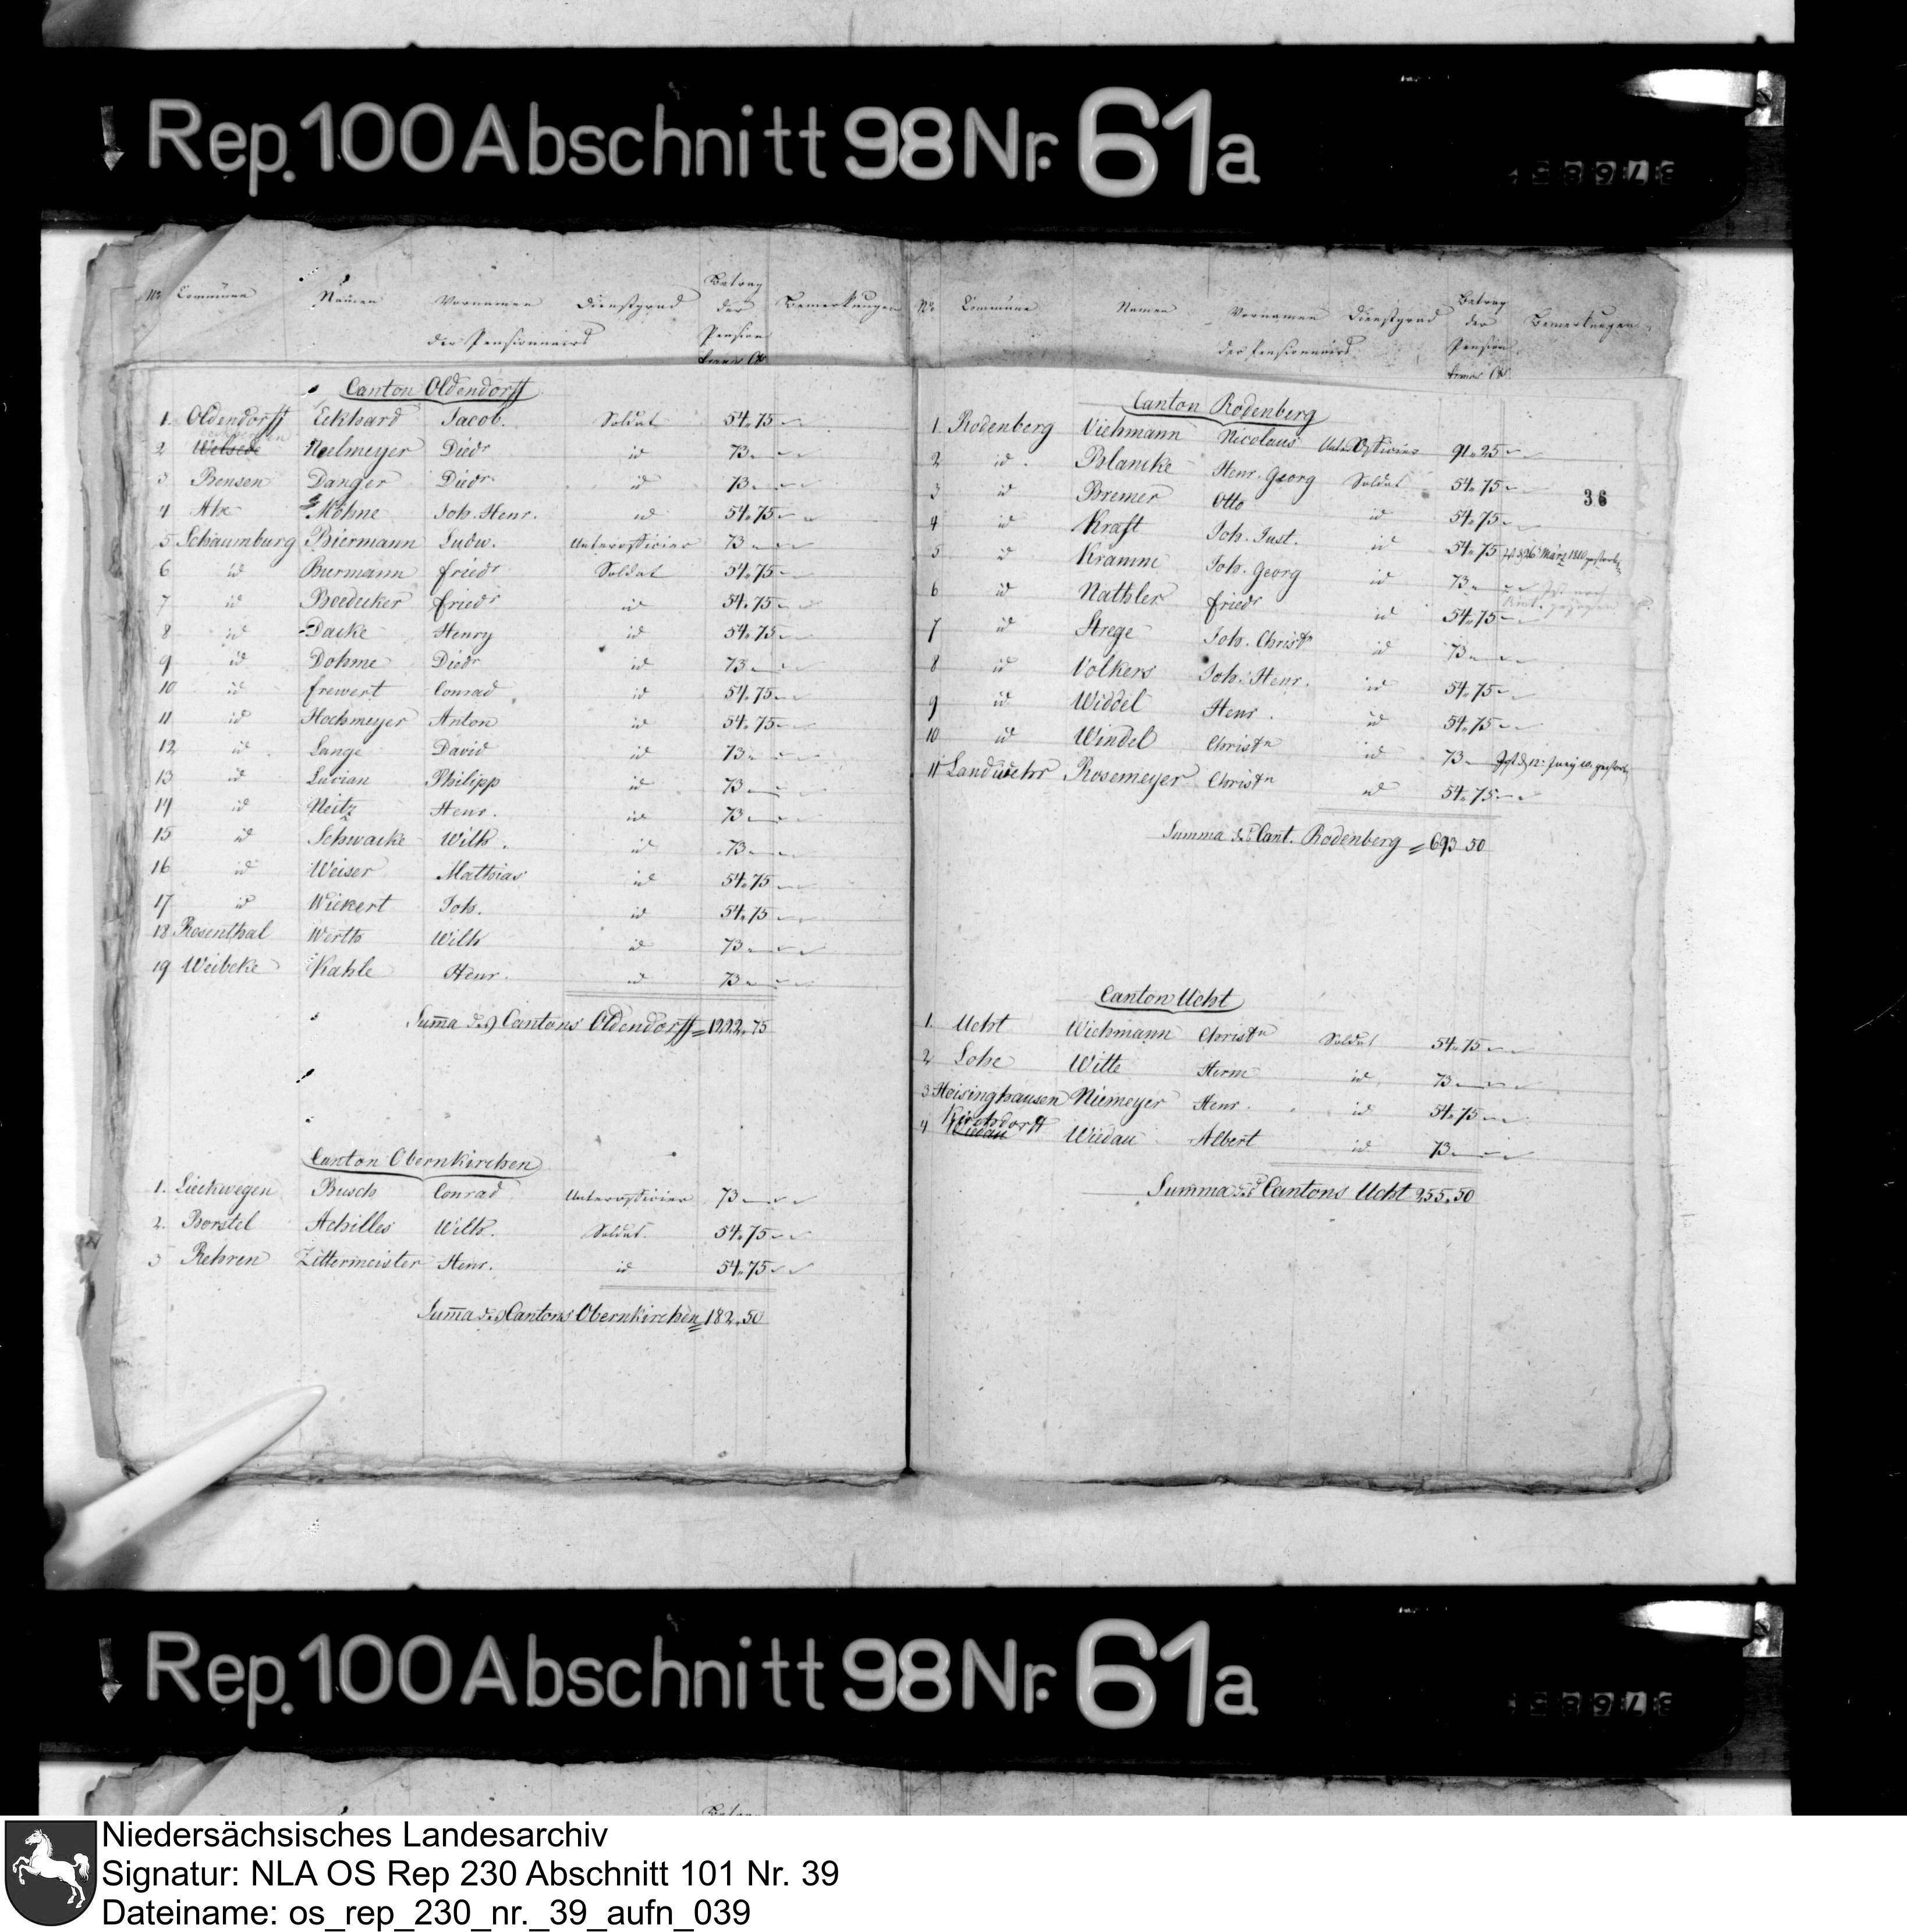 Rep. 100 Abschnitt 98 Nr. 61a
No Commune Namen Vornamen Dienstgrad Betrag der Pension Bemerkungen
der Pensionnairs
Canton Oldendorff
1. Oldendorff Eckhard Jacob. Soldat 54.75
2 Welsede Noelmeyer Diedr id 73
3 Bensen Danger Diedr id 73
4 Ahe Möhne Joh. Henr. id 54.75
5 Schaumburg Biermann Ludw. Unterofficier 73
6 id Burmann Friedr Soldat 54.75
7 id Boedecker Friedr id 54.75
8 id Dacke Henry id 54.75
9 id Dohme Diedr id 73
10 id Frewert Conrad id 54.75
11 id Hochmeyer Anton id 54.75
12 id Lange David id 73
13 id Lucian Philipp id 73
14 id Neitz Henr. id 73
15 id Schwacke Wilh. id 73
16 id Weiser Mathias id 54.75
17 id Wiekert Joh. id 54.75
18 Rosenthal Werth Wilh id 73
19 Weibeke Kahle Henr. id 73
Summa des Cantons Oldendorff = 1222.75
Canton Obernkirchen
1. Lieckwegen Busch Conrad Unterofficier 73
2. Borstel Achilles Wilh. Soldat 54.75
3 Rehren Zittermeister Henr. id 54.75
Summa des Cantons Obernkirchen = 182.50
No Commune Namen Vornamen Dienstgrad Betrag der Pension Bemerkungen
der Pensionnairs
36
Canton Rodenberg
1. Rodenberg Viehmann Nicolaus Unterofficier 91.25
2 id. Blancke Henr. Georg Soldat 54.75
3 id Bremer Otto id 54.75
4 id Kraft Joh. Just. id 54.75 ist d 26 März 1810 gestorben
5 id Kramm Joh. Georg id 73 Ist nach gezogen
6 id Nathler Friedr id 54.75
7 id Strege Joh. Christ id 73
8 id Volkers Joh. Henr. id 54.75
9 id Widdel Henr. id 54.75
10 id Windel Christn id 73 Ist d 12. Juny 10. gestorb
11 Landwehr Rosemeyer Christn id 54.75
Summa des Cant. Rodenberg = 693 50
Canton Ucht
1. Ucht Wichmann Christn Soldat 54.75
2 Lohe Witte Herm id 73
3 Hoisinghausen Niemeyer Henr. id 54.75
4 Kirchdorff Wiedau Wiedau Albert id 73
Summa des Cantons Ucht 255.50
Rep. 100 Abschnitt 98 Nr. 61a
Niedersächsisches Landesarchiv
Signatur: NLA OS Rep 230 Abschnitt 101 Nr. 39
Dateiname: os_rep_230_nr._39_aufn_039